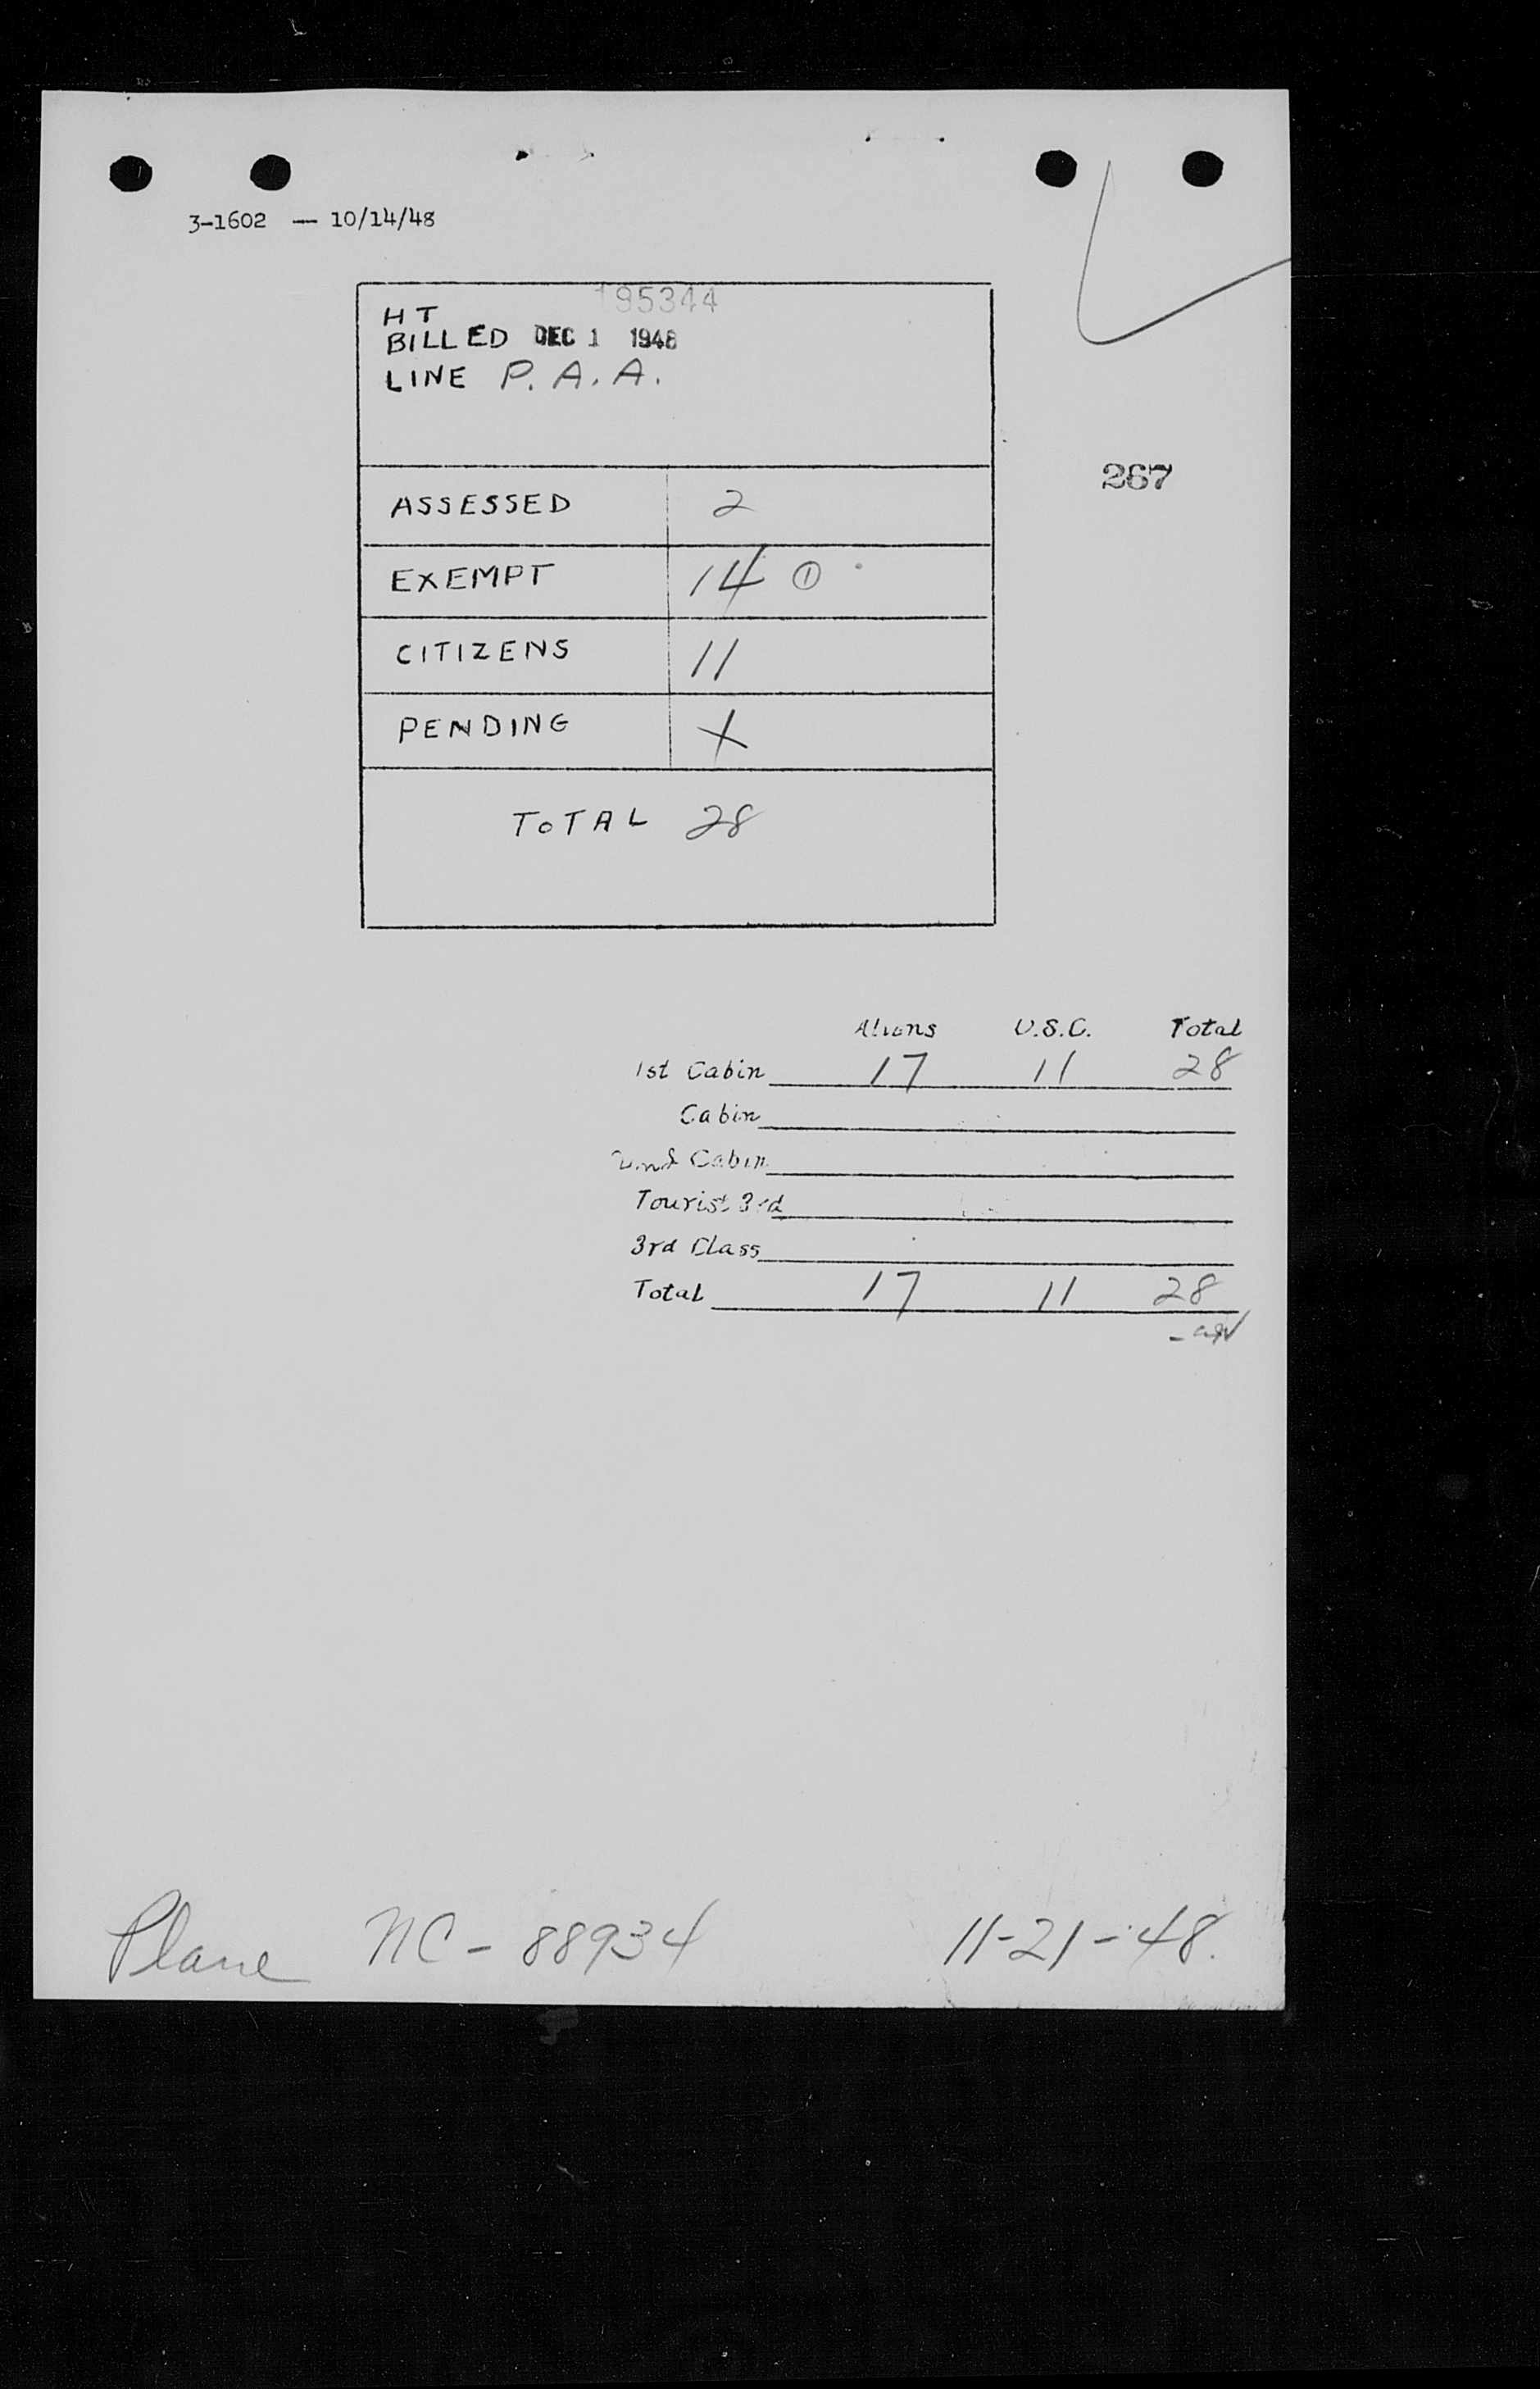 3-1602 — 10/14/48
195344
HT
BILLED DEC 1 1948
LINE P. A. A.
267
ASSESSED 2
EXEMPT 14 ①
CITIZENS 11
PENDING X
TOTAL 28
Aliens U.S.C. Total
1st Cabin 17 11 28
Cabin
Cabin
Tourist 3rd
3rd Class
Total 17 11 28
Plane NC - 88934 11-21-48.